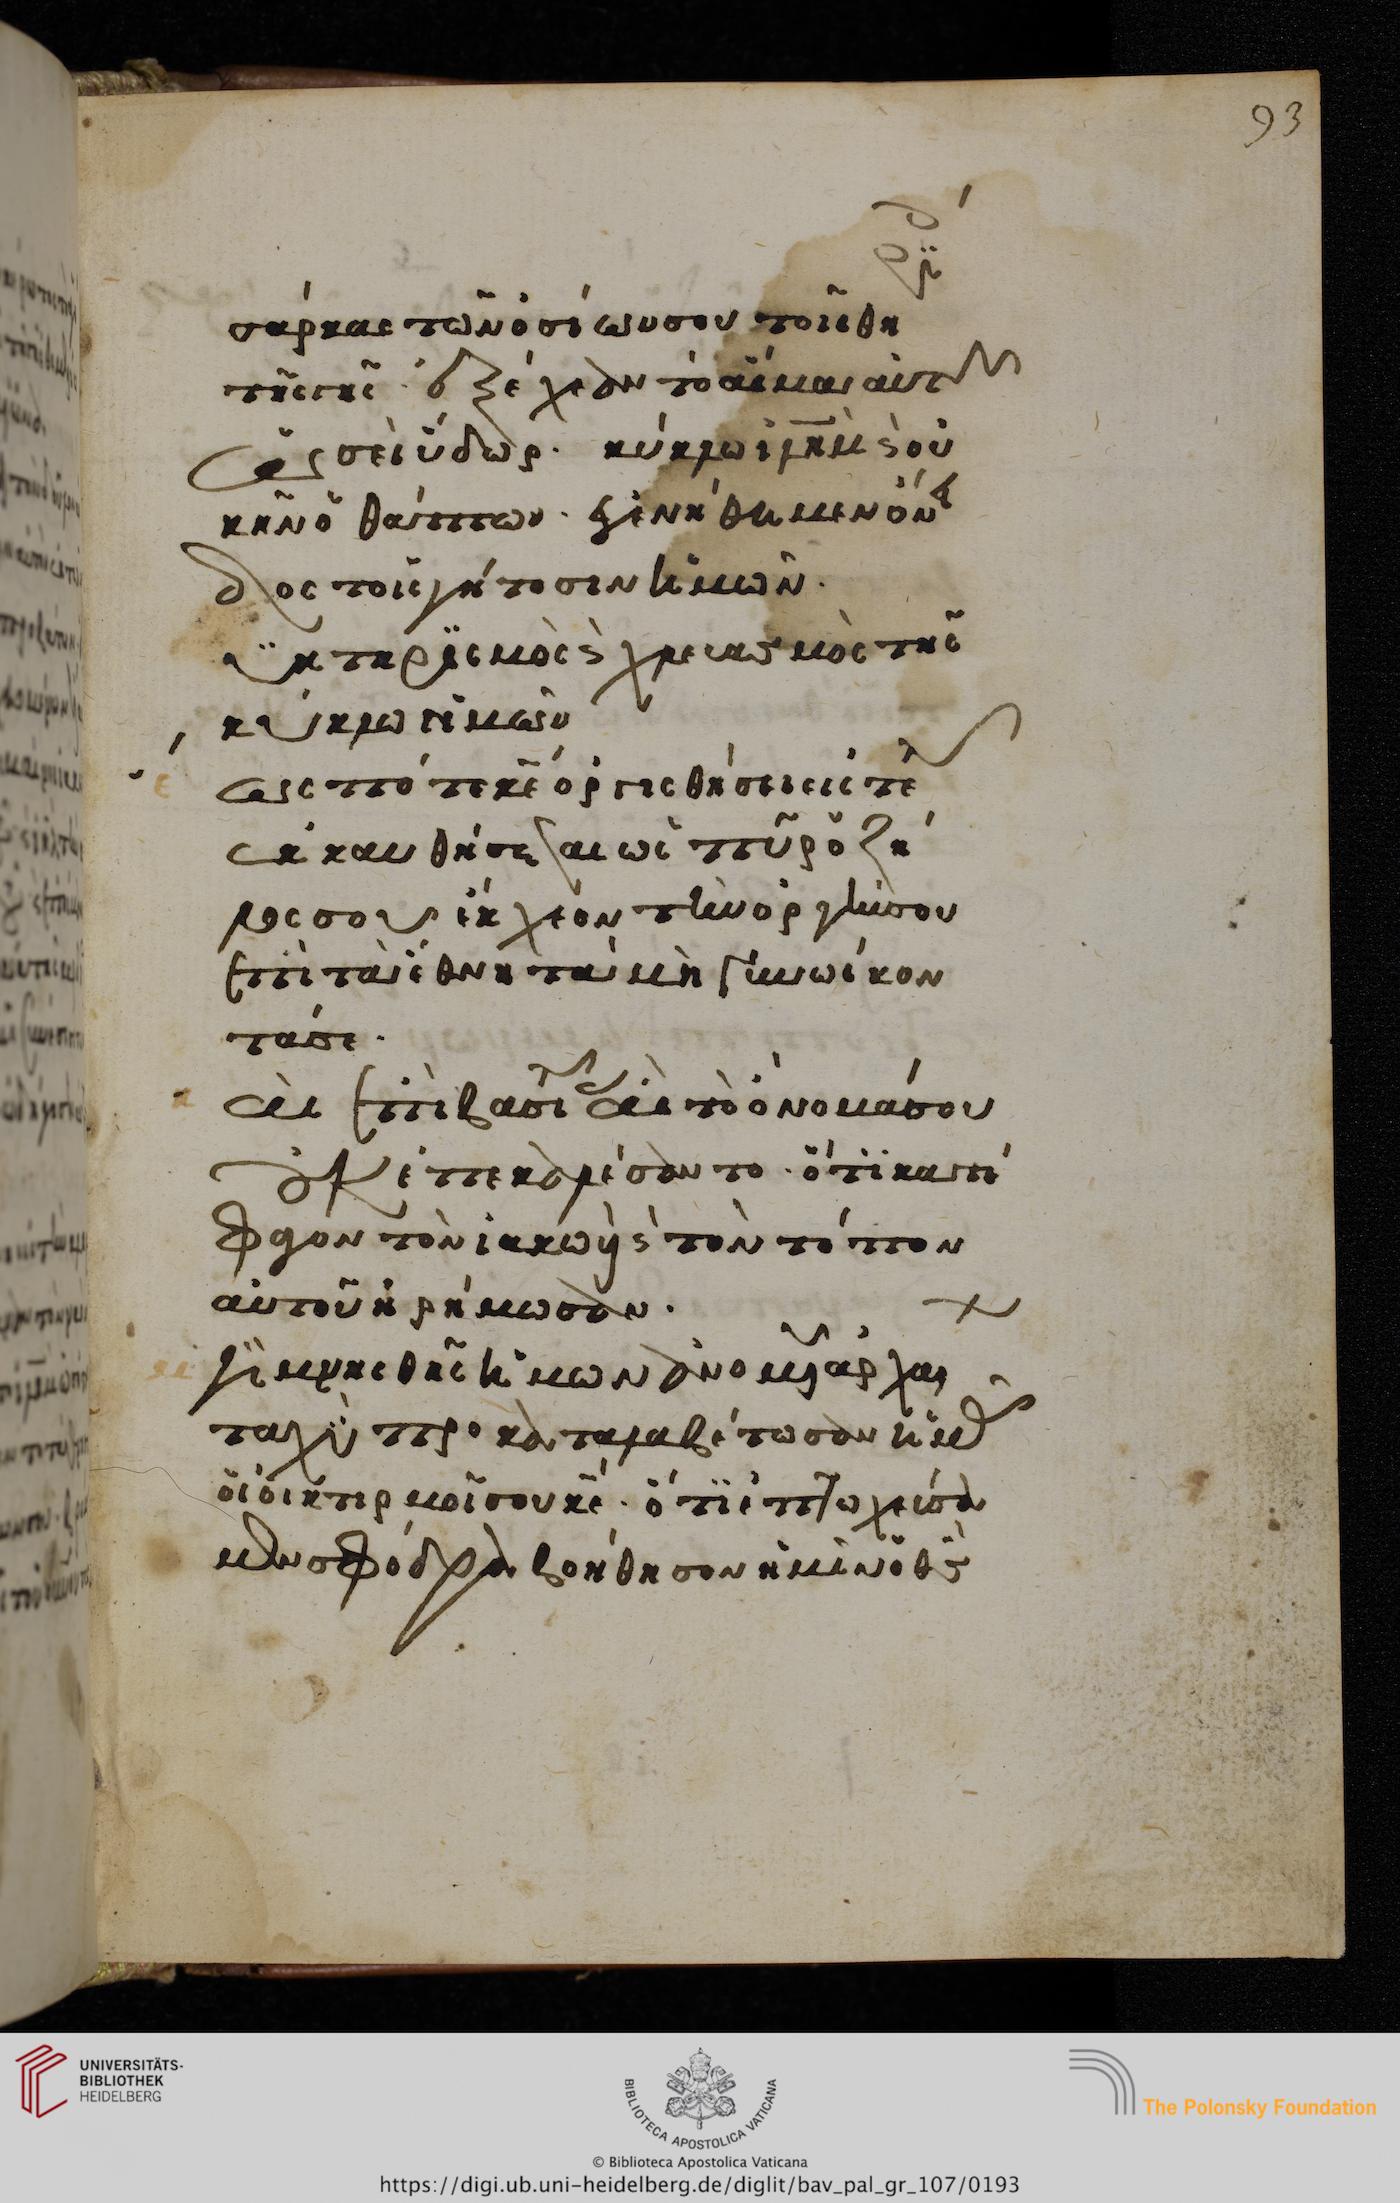 93
σάρκας τῶν ὁσίων σου τοῖς θη
τῆς γῆς· ἐξέχεαν τὸ αἷμα αὐτῶν
ὡσεὶ ὕδωρ· κύκλω ϊλὴμ ϗ οὐ
κ ἦν ὁ θάπτων· ἐγενήθημεν ὄνει
δος τοῖς γείτοσιν ἡμῶν·
μυκτηρισμὸς ϗ χλευασμὸς τοῖς
κύκλω ἡμῶν
ἕως πότε κε ὀργισθήσει εἰς τέλος
ἐκκαυθήσεται ὡς πῦρ ὁ ζῆ
λος σου ἔκχεον τὴν ὀργήν σου
ἐπὶ τὰ ἔθνη τὰ μὴ γινώσκον
τά σε·
καὶ ἐπὶ βασιλείας αἳ τὸ ὄνομά σου
οὐκ ἐπεκαλέσαντο· ὅτι κατέ
φαγον τὸν ἰακὼβ ϗ τὸν τόπον
αὐτοῦ ἠρήμωσαν·
μὴ μνησθῆς ἡμῶν ἀνομιῶν ἀρχαίων
ταχὺ προκαταλαβέτωσαν ἡμᾶς
οἱ οἰκτιρμοί σου κε· ὅτι ἐπτωχεύσα
μεν σφόδρα βοήθησον ἡμῖν ὁ θς
UNIVERSITÄTS-
BIBLIOTHEK
HEIDELBERG
BIBLIOTECA APOSTOLICA VATICANA
The Polonsky Foundation
© Biblioteca Apostolica Vaticana
https://digi.ub.uni-heidelberg.de/diglit/bav_pal_gr_107/0193